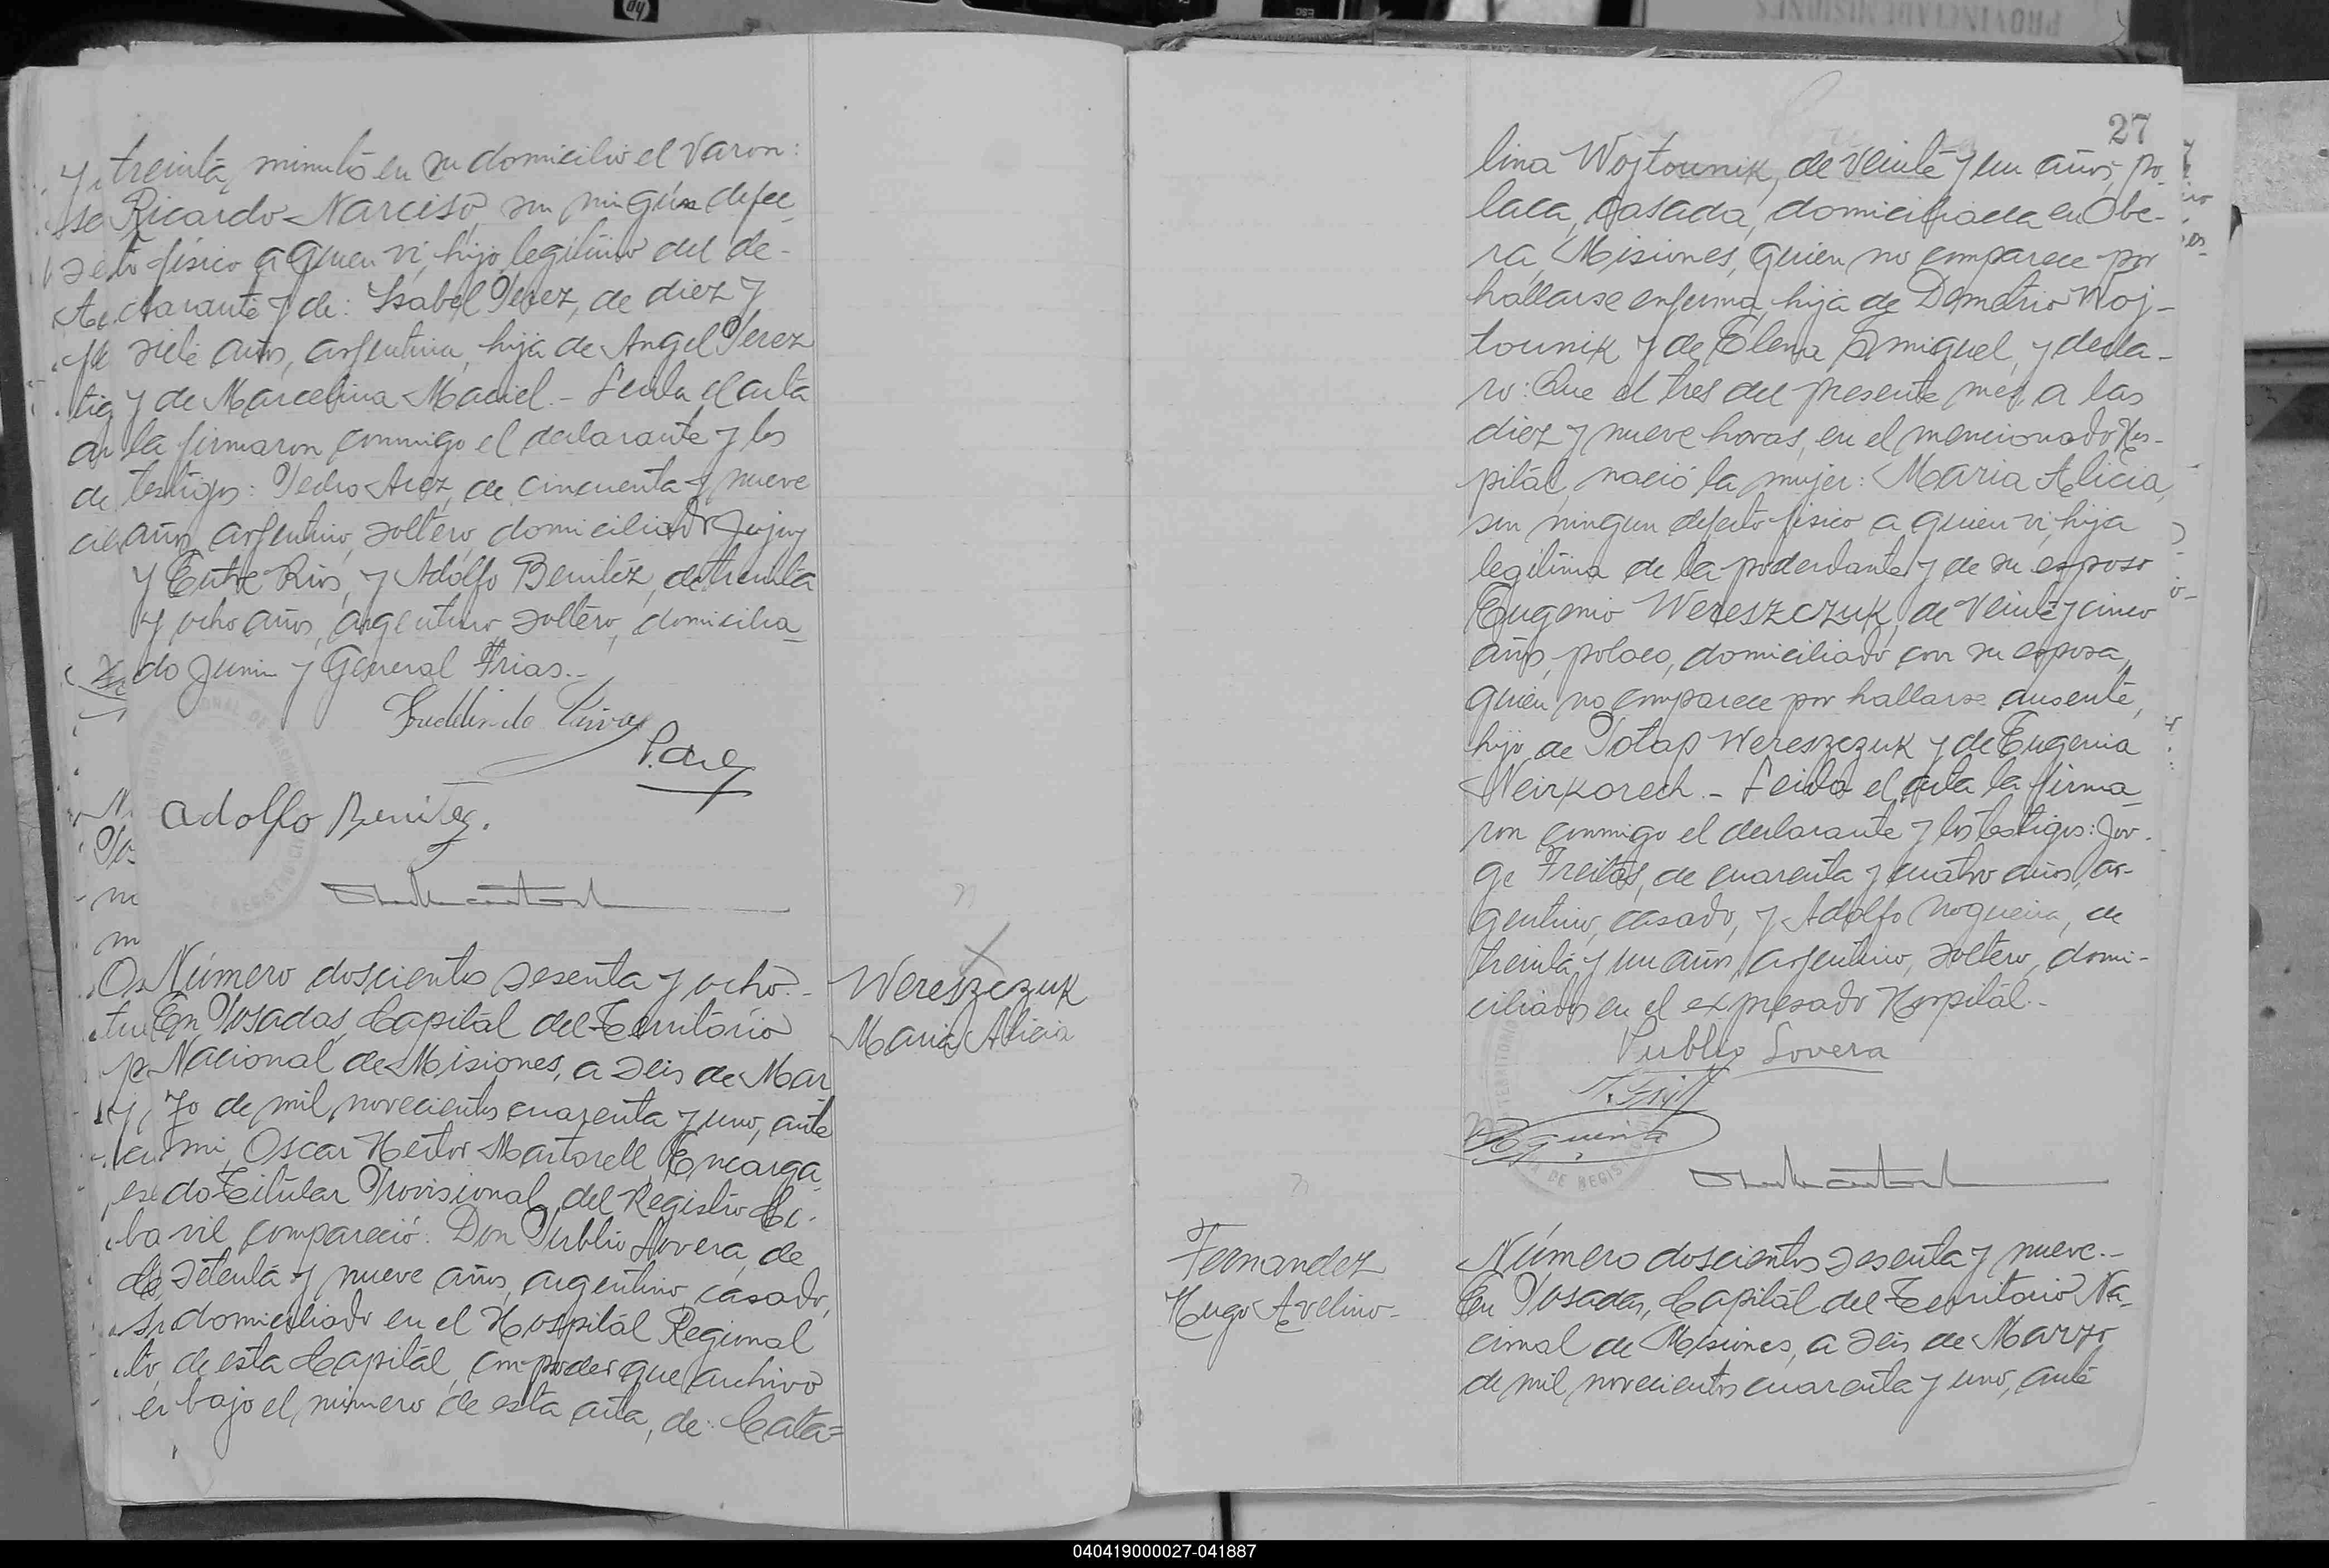 y treinta minutos en su domicilio el varon:
Ricardo Narciso, sin ningún defec-
to físico a quien vi, hijo legítimo del de-
clarante y de: Isabel Perez, de diez y
siete años, argentina, hija de Angel Perez
y de Marcelina Maciel.- Leida el acta
la firmaron conmigo el declarante y los
testigos: Pedro Arez, de cincuenta y nueve
años, argentino, soltero, domiciliado Jujuy
y Entre Rios, y Adolfo Benitez, de treinta
y ocho años, argentino, soltero, domicilia-
do Junin y General Frias.-
Adolfo Benitez.
Número doscientos sesenta y ocho.-
En Posadas, Capital del Territorio
Nacional de Misiones, a seis de Mar
zo de mil novecientos cuarenta y uno, ante
mi, Oscar Hector Martorell, Encarga-
do Titular Provisional del Registro Ci-
vil compareció: Don Publio Lovera, de
setenta y nueve años, argentino, casado,
domiciliado en el Hospital Regional
de esta Capital, con poder que archivo
bajo el número de esta acta, de: Cata=
Wereszczuk
Maria Alicia
27
lina Wojtounik, de veinte y un años, po-
laca, casada, domiciliada en Obe-
ra, Misiones, quien no comparece por
hallarse enferma, hija de Demetrio Woj-
tounik y de Elena Smiguel, y decla-
ro: Que el tres del presente mes, a las
diez y nueve horas, en el mencionado Hos-
pital, nació la mujer: Maria Alicia,
sin ningun defecto físico a quien vi, hija
legítima de la poderdante y de su esposo
Eugenio Wereszczuk, de veinte y cinco
años, polaco, domiciliado con su esposa,
quien no comparece por hallarse ausente,
hijo de Potap Wereszczuk y de Eugenia
Neirkorech.- Leida el acta la firma-
ron conmigo el declarante y los testigos: Jor-
ge Freitas, de cuarenta y cuatro años, ar-
gentino, casado, y Adolfo Nogueira, de
treinta y un años, argentino, soltero, domi-
ciliados en el expresado Hospital.-
Publio Lovera
Fernandez
Hugo Avelino-
Número doscientos sesenta y nueve.-
En Posadas, Capital del Territorio Na-
cional de Misiones, a seis de Marzo
de mil novecientos cuarenta y uno, ante
040419000027-041887